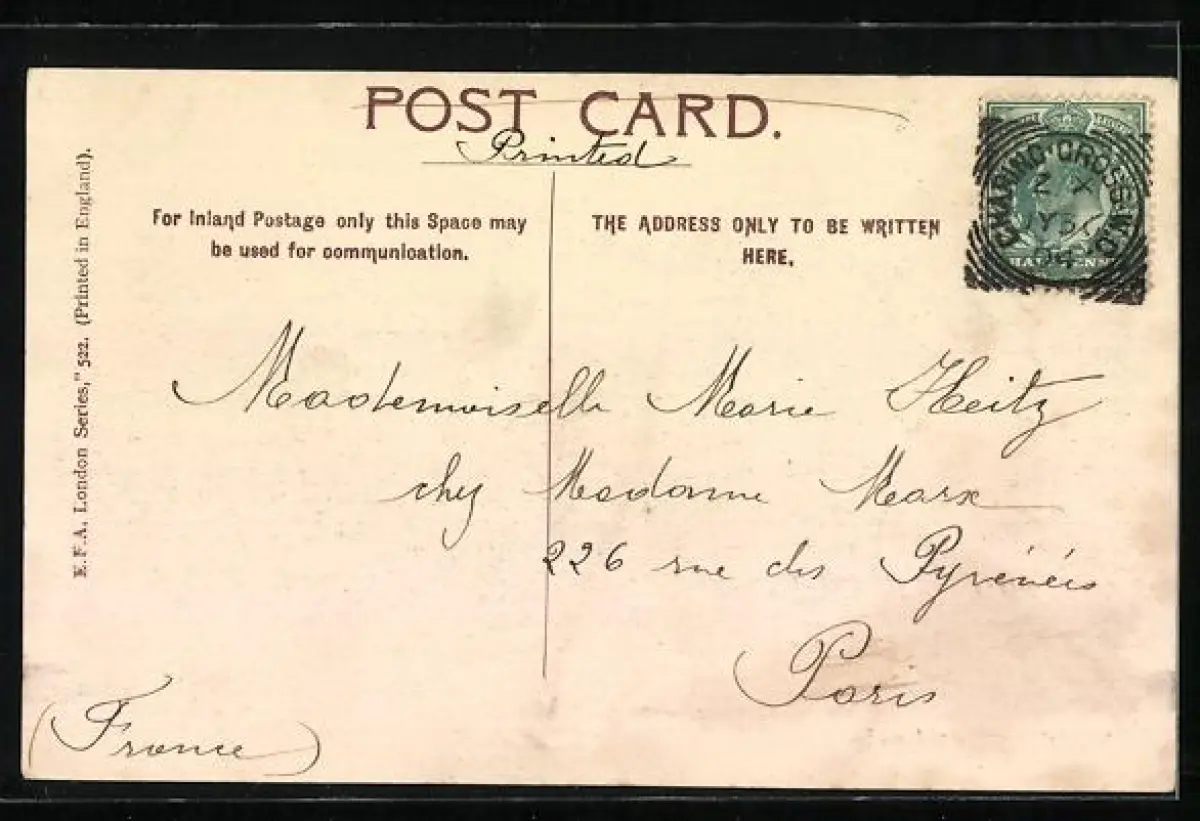 POST CARD.
Printed
For Inland Postage only this Space may
be used for communication.
THE ADDRESS ONLY TO BE WRITTEN
HERE.
CHARING·CROSS.
HALFPENNY
E.F.A. London Series," 522. (Printed in England).
Mademoiselle Marie Heitz
chez Madame Marx
226 rue des Pyrénées
Paris
(France)